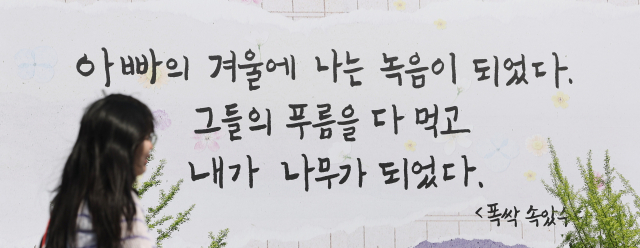 아빠의 겨울에 나는 녹음이 되었다.
그들의 푸름을 다 먹고
내가 나무가 되었다.
<폭싹 속았수